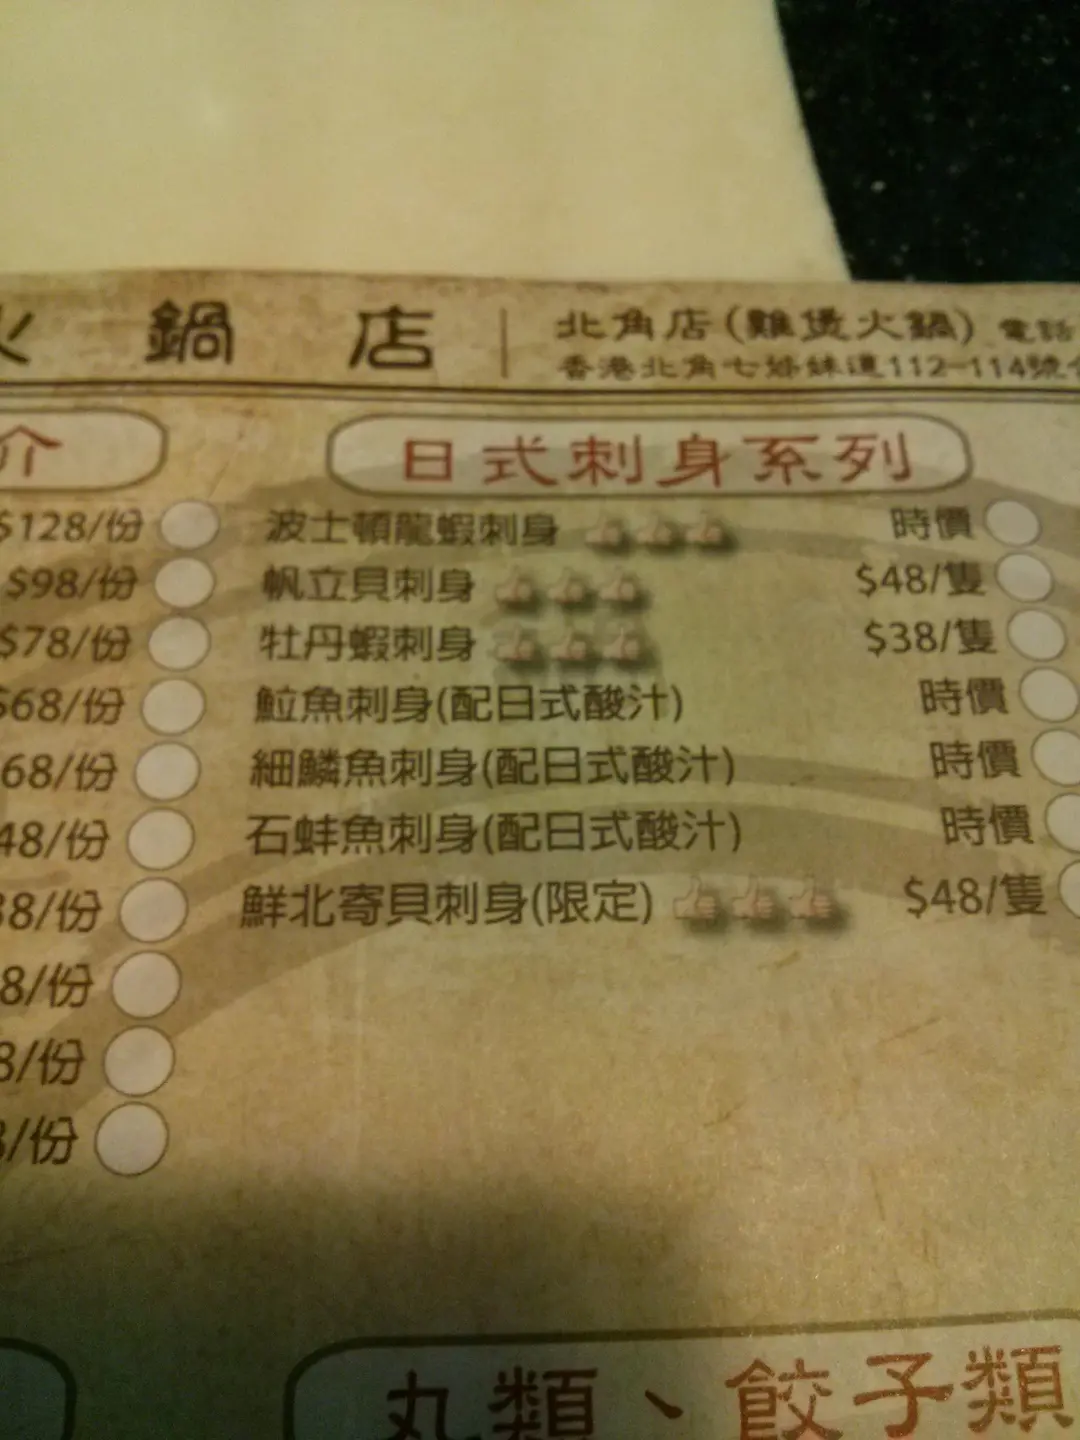 火鍋店
北角店(雞煲火鍋) 電話
香港北角七姊妹道112-114號
介
日式刺身系列
$128/份
$98/份
$78/份
$68/份
68/份
48/份
38/份
8/份
8/份
8/份
波士頓龍蝦刺身 時價
帆立貝刺身 $48/隻
牡丹蝦刺身 $38/隻
鮋魚刺身(配日式酸汁) 時價
細鱗魚刺身(配日式酸汁) 時價
石蚌魚刺身(配日式酸汁) 時價
鮮北寄貝刺身(限定) $48/隻
丸類、餃子類